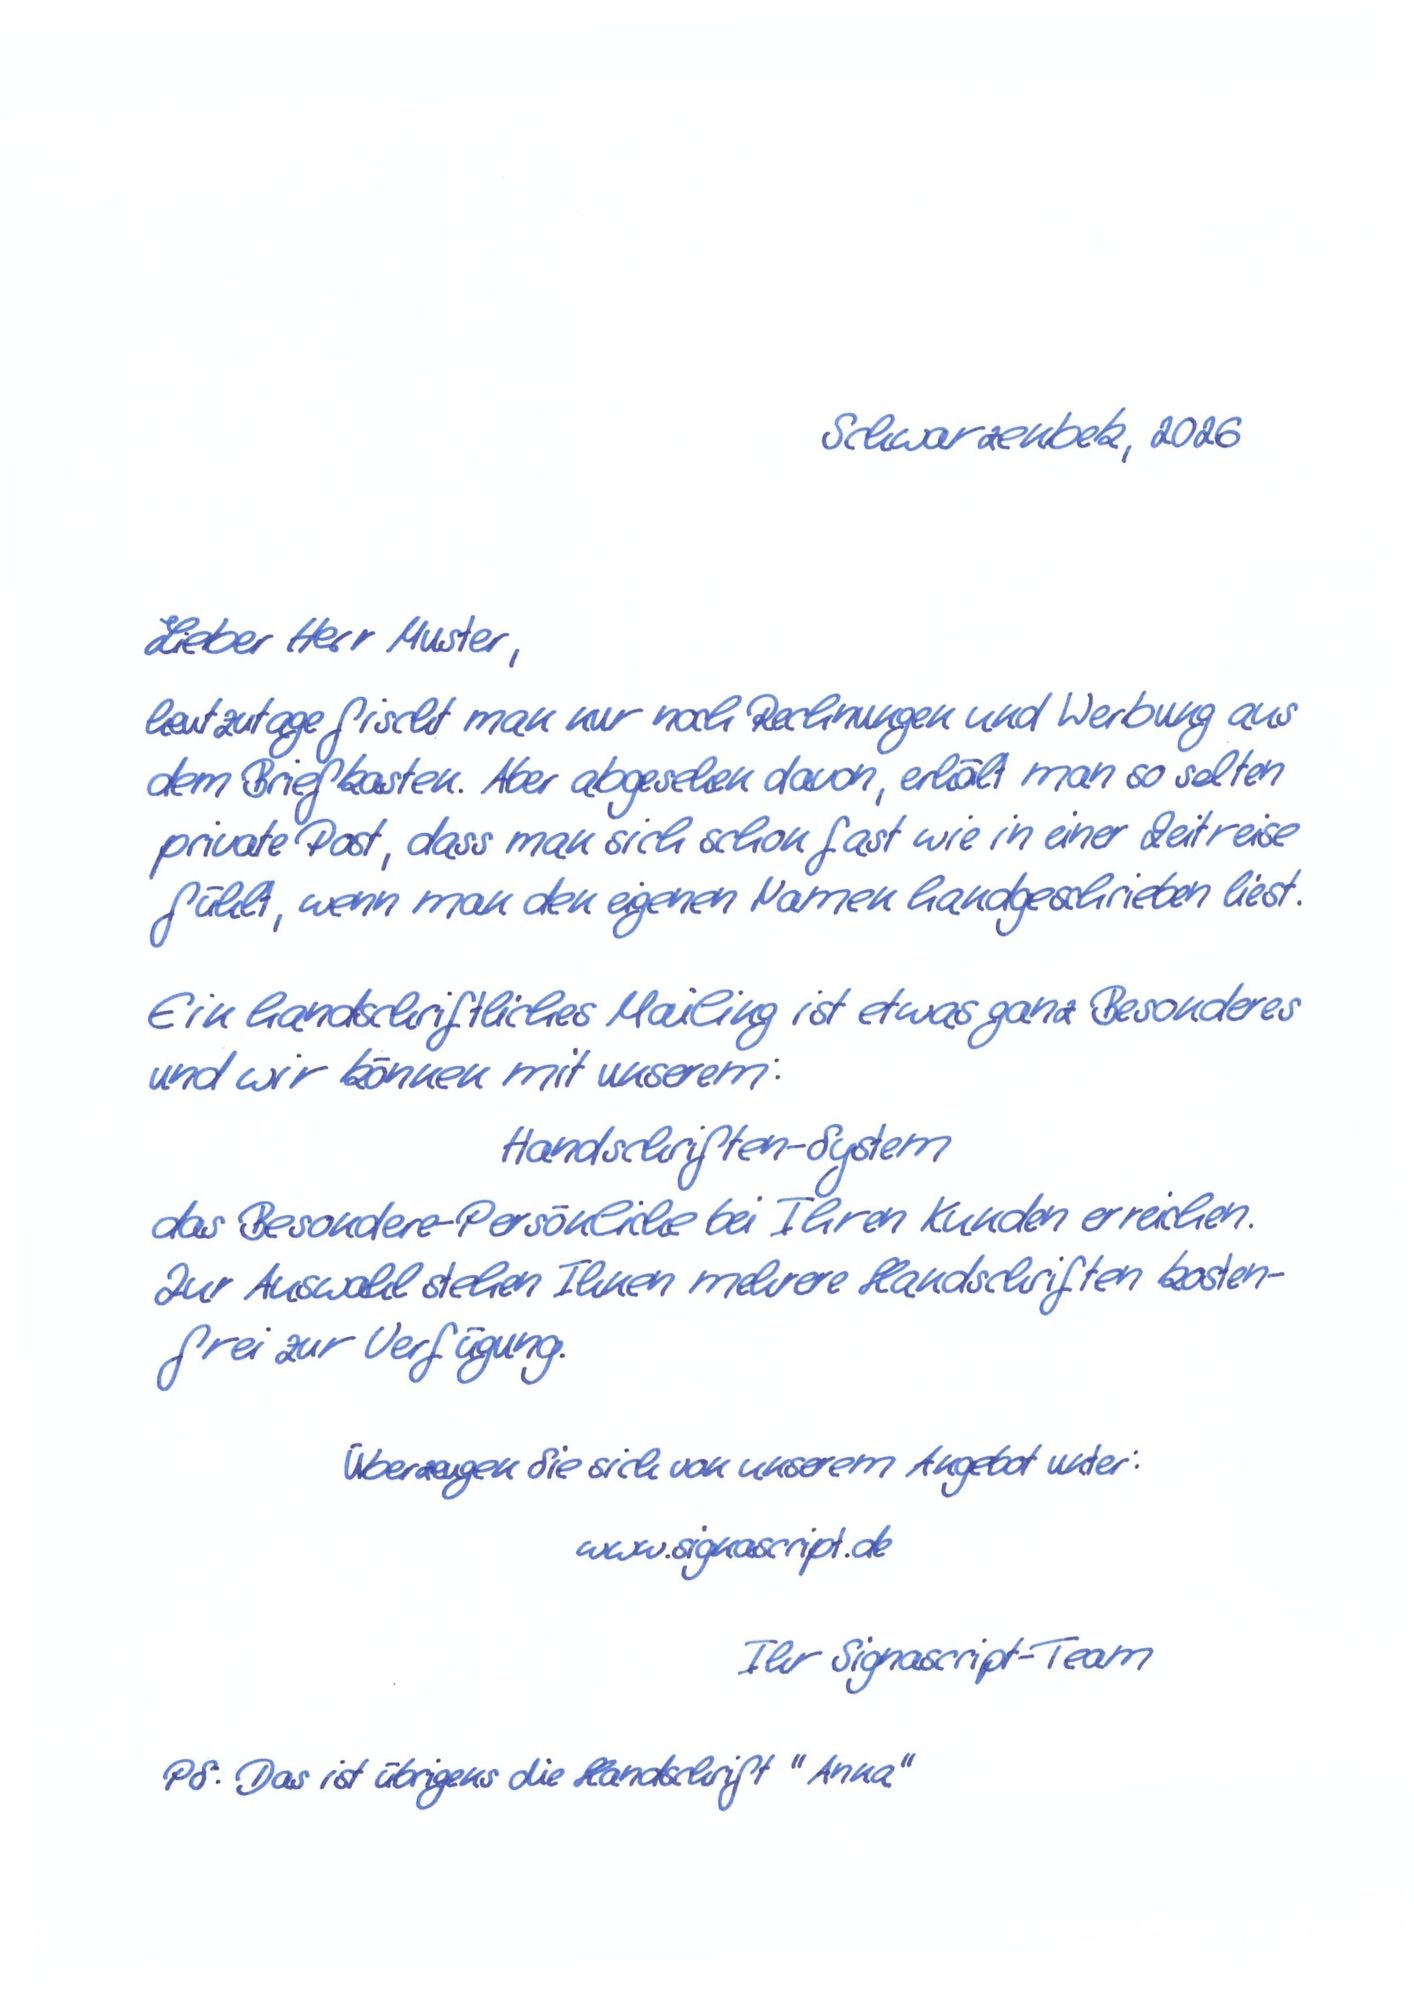 Schwarzenbek, 2026
Lieber Herr Muster,
heutzutage fischt man nur noch Rechnungen und Werbung aus
dem Briefkasten. Aber abgesehen davon, erhält man so selten
private Post, dass man sich schon fast wie in einer Zeitreise
fühlt, wenn man den eigenen Namen handgeschrieben liest.
Ein handschriftliches Mailing ist etwas ganz Besonderes
und wir können mit unserem:
Handschriften-System
das Besondere-Persönliche bei Ihren Kunden erreichen.
Zur Auswahl stehen Ihnen mehrere Handschriften kosten-
frei zur Verfügung.
Überzeugen Sie sich von unserem Angebot unter:
www.signascript.de
Ihr Signascript-Team
PS: Das ist übrigens die Handschrift "Anna"